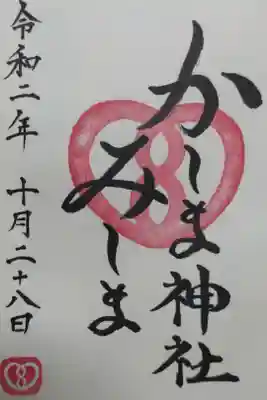 かしま神社
みしま
令和二年 十月二十八日